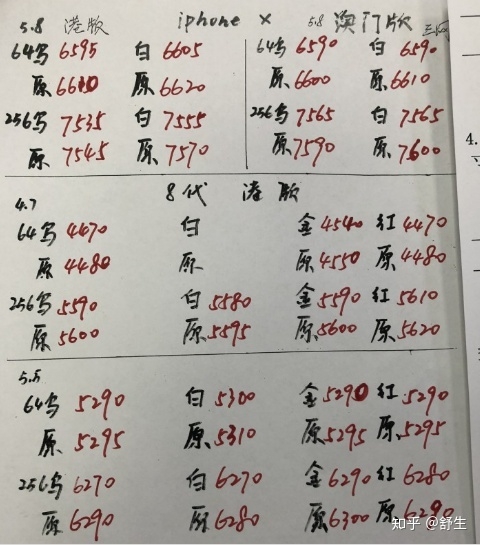 5.8 港版 iphone X 5.8 澳门版
64乌 6595 白 6605 64乌 6590 白 6590
原 6610 原 6620 原 6600 原 6610
256乌 7535 白 7555 256乌 7565 白 7565
原 7545 原 7570 原 7590 原 7600
4.
4.7 8代 港版
64乌 4470 白 金 4540 红 4470
原 4480 原 原 4550 原 4480
256乌 5590 白 5580 金 5590 红 5610
原 5600 原 5595 原 5600 原 5620
5.5
64乌 5290 白 5300 金 5290 红 5290
原 5295 原 5310 原 5295 原 5295
256乌 6270 白 6270 金 6290 红 6280
原 6290 原 6280 原 6300 原 6290
知乎 @舒生